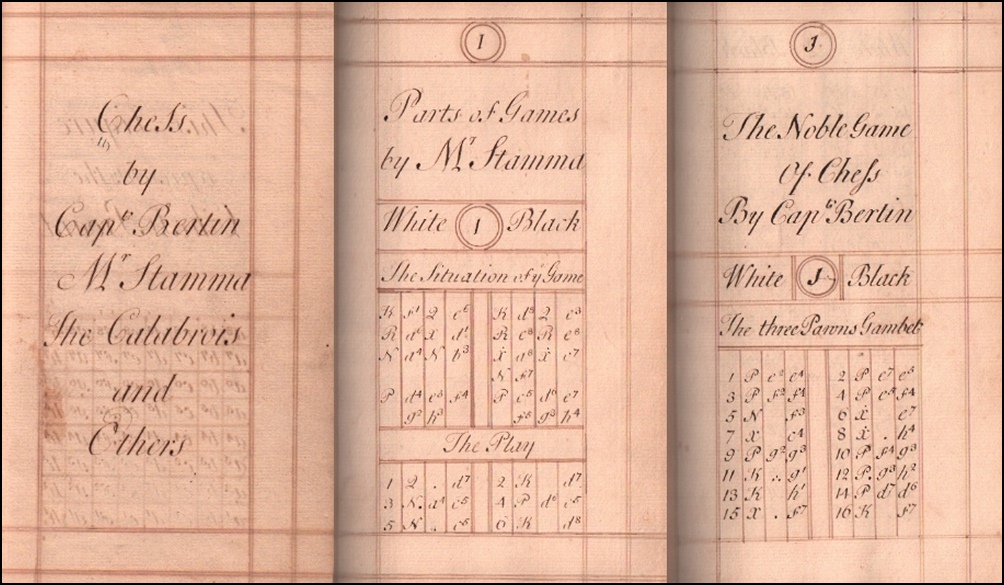 Chess
by
Capt Bertin
Mr Stamma
The Calabrois
and
Others
I
Parts of Games
by Mr Stamma
White 1 Black
The Situation of ye Game
K f1 Q c6 K d8 Q c3
R d1 R c8 R e8
N d4 N h3 a8 e7
N f7
P d4 e3 f4 P c5 d6 e7
g2 h2 f5 g3 h4
The Play
1 Q . d7 2 K d7
3 N . c5 4 P d6 c5
5 N . c5 6 K d8
J
The Noble Game
Of Chess
By Capt Bertin
White J Black
The three Pawns Gambet
1 P e2 e4 2 P e7 e5
3 P f2 f4 4 P e5 f4
5 N f3 6 X e7
7 X c4 8 X . h4
9 P g2 g3 10 P f4 g3
11 K .. g1 12 P g3 h2
13 K h1 14 P d7 d6
15 X . f7 16 K f7